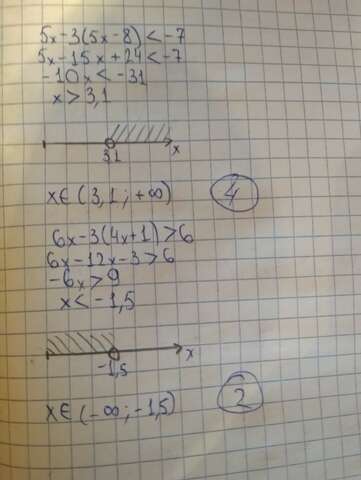 5x-3(5x-8)<-7
5x-15x+24<-7
-10x<-31
x>3,1
3,1 x
x∈(3,1;+∞) 4
6x-3(4x+1)>6
6x-12x-3>6
-6x>9
x<-1,5
-1,5 x
x∈(-∞;-1,5) 2